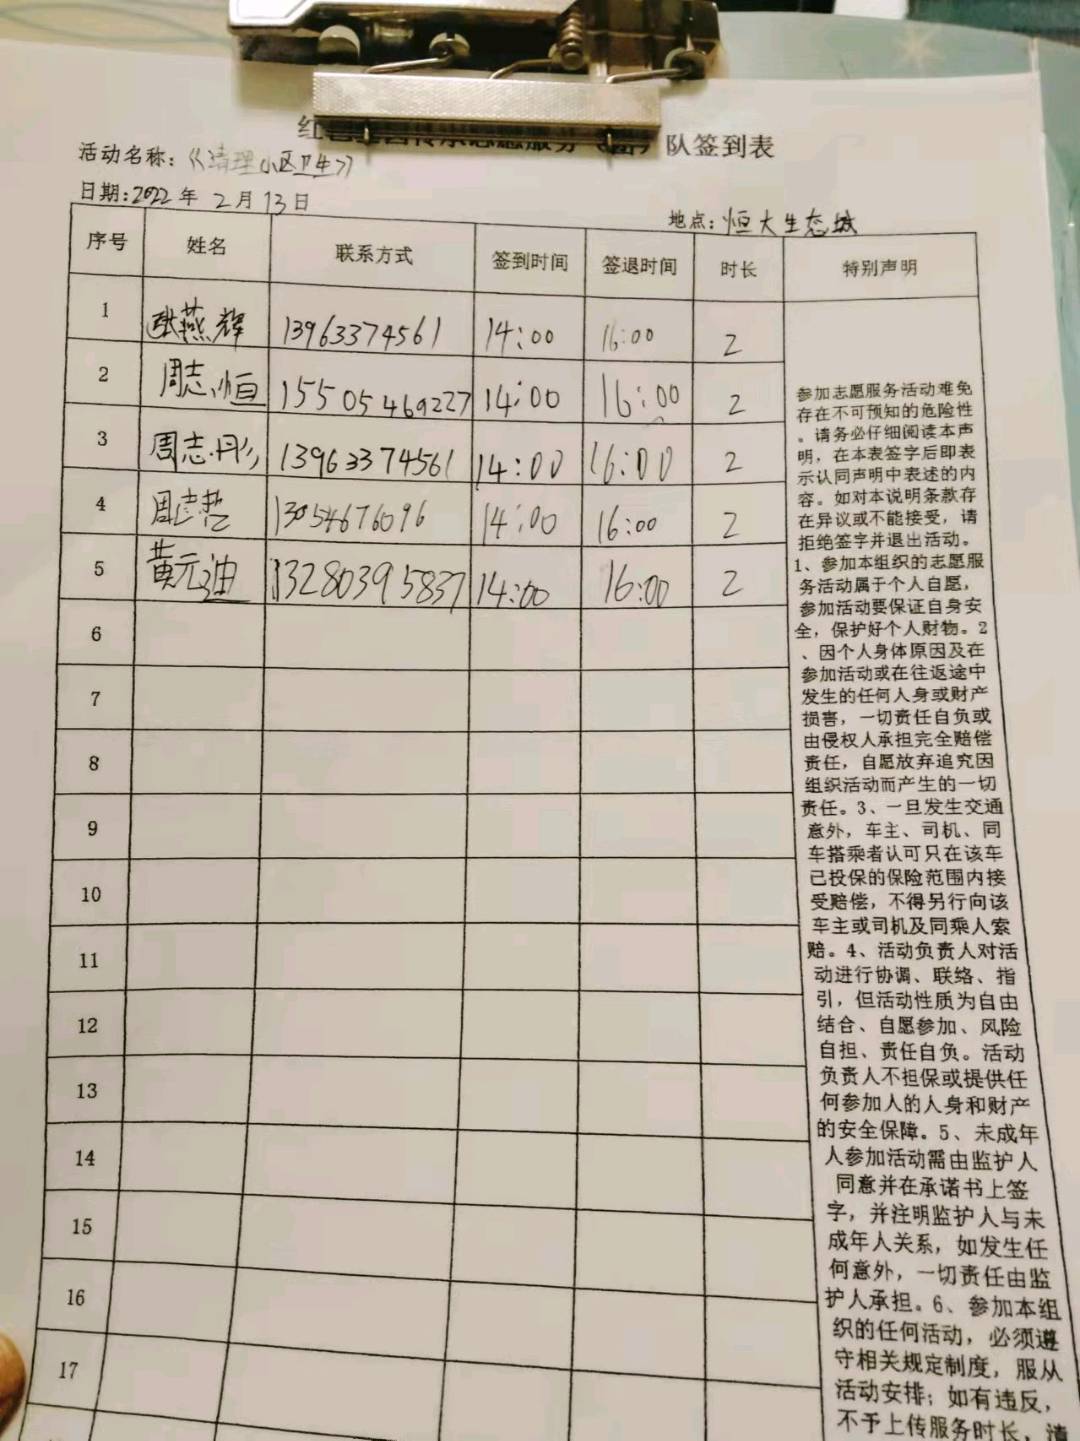 队签到表
活动名称：《清理小区卫生》
日期：2022 年 2 月 13 日
地点：恒大生态城
序号 姓名 联系方式 签到时间 签退时间 时长 特别声明
1 张燕辉 13963374561 14:00 16:00 2
2 周志恒 15505469227 14:00 16:00 2
3 周志彤 13963374561 14:00 16:00 2
4 13054676096 14:00 16:00 2
5 黄元迪 13280395837 14:00 16:00 2
6
7
8
9
10
11
12
13
14
15
16
17
参加志愿服务活动难免
存在不可预知的危险性
。请务必仔细阅读本声
明，在本表签字后即表
示认同声明中表述的内
容。如对本说明条款存
在异议或不能接受，请
拒绝签字并退出活动。
1、参加本组织的志愿服
务活动属于个人自愿，
参加活动要保证自身安
全，保护好个人财物。2
、因个人身体原因及在
参加活动或在往返途中
发生的任何人身或财产
损害，一切责任自负或
由侵权人承担完全赔偿
责任，自愿放弃追究因
组织活动而产生的一切
责任。3、一旦发生交通
意外，车主、司机、同
车搭乘者认可只在该车
已投保的保险范围内接
受赔偿，不得另行向该
车主或司机及同乘人索
赔。4、活动负责人对活
动进行协调、联络、指
引，但活动性质为自由
结合、自愿参加、风险
自担、责任自负。活动
负责人不担保或提供任
何参加人的人身和财产
的安全保障。5、未成年
人参加活动需由监护人
同意并在承诺书上签
字，并注明监护人与未
成年人关系，如发生任
何意外，一切责任由监
护人承担。6、参加本组
织的任何活动，必须遵
守相关规定制度，服从
活动安排；如有违反，
不予上传服务时长，请